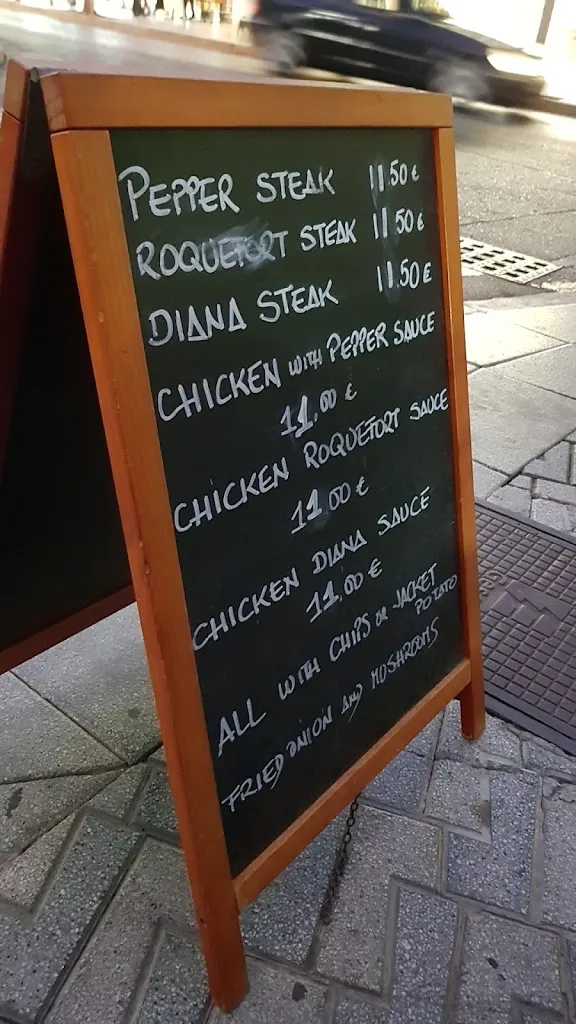 PEPPER STEAK 11.50 €
ROQUEFORT STEAK 11.50 €
DIANA STEAK 11.50 €
CHICKEN WITH PEPPER SAUCE
11.00 €
CHICKEN ROQUEFORT SAUCE
11.00 €
CHICKEN DIANA SAUCE
11.00 €
ALL WITH CHIPS OR JACKET
POTATO
FRIED ONION AND MUSHROOMS